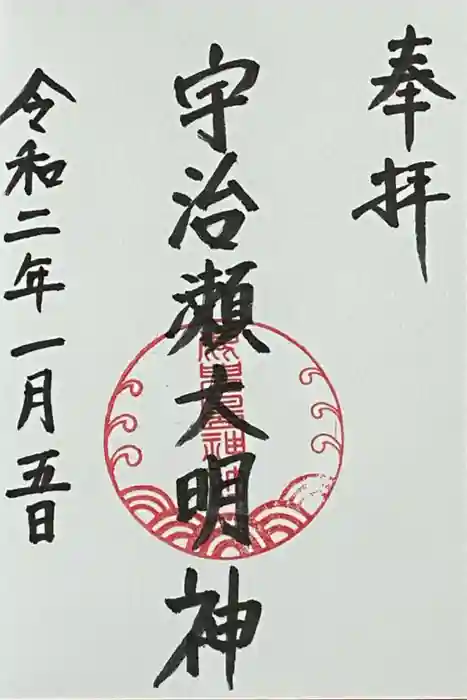 奉拝
宇治瀬大明神
令和二年一月五日